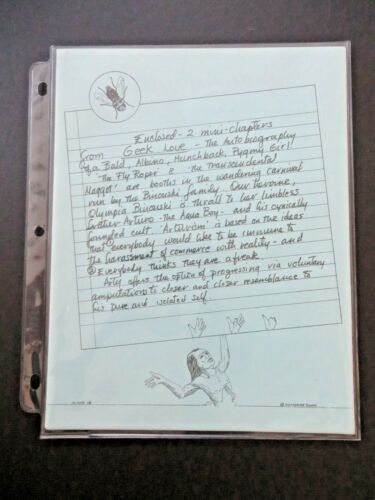 Enclosed - 2 mini-chapters
From Geek Love - The Autobiography
of a Bald, Albino, Hunchback, Pygmy Girl!
'The Fly Roper' & 'The Transcendental
Maggot' are booths in the wandering carnival
run by the Binewski family. Our heroine,
Olympia Binewski is thrall to her limbless
brother Arturo - The Aqua Boy - and his cynically
founded cult. 'Arturism' is based on the ideas
that ① everybody would like to be immune to
the harassment of commerce with reality - and
② Everybody thinks they are a freak.
Arty offers the option of progressing via voluntary
amputations to closer and closer resemblance to
his pure and isolated self.